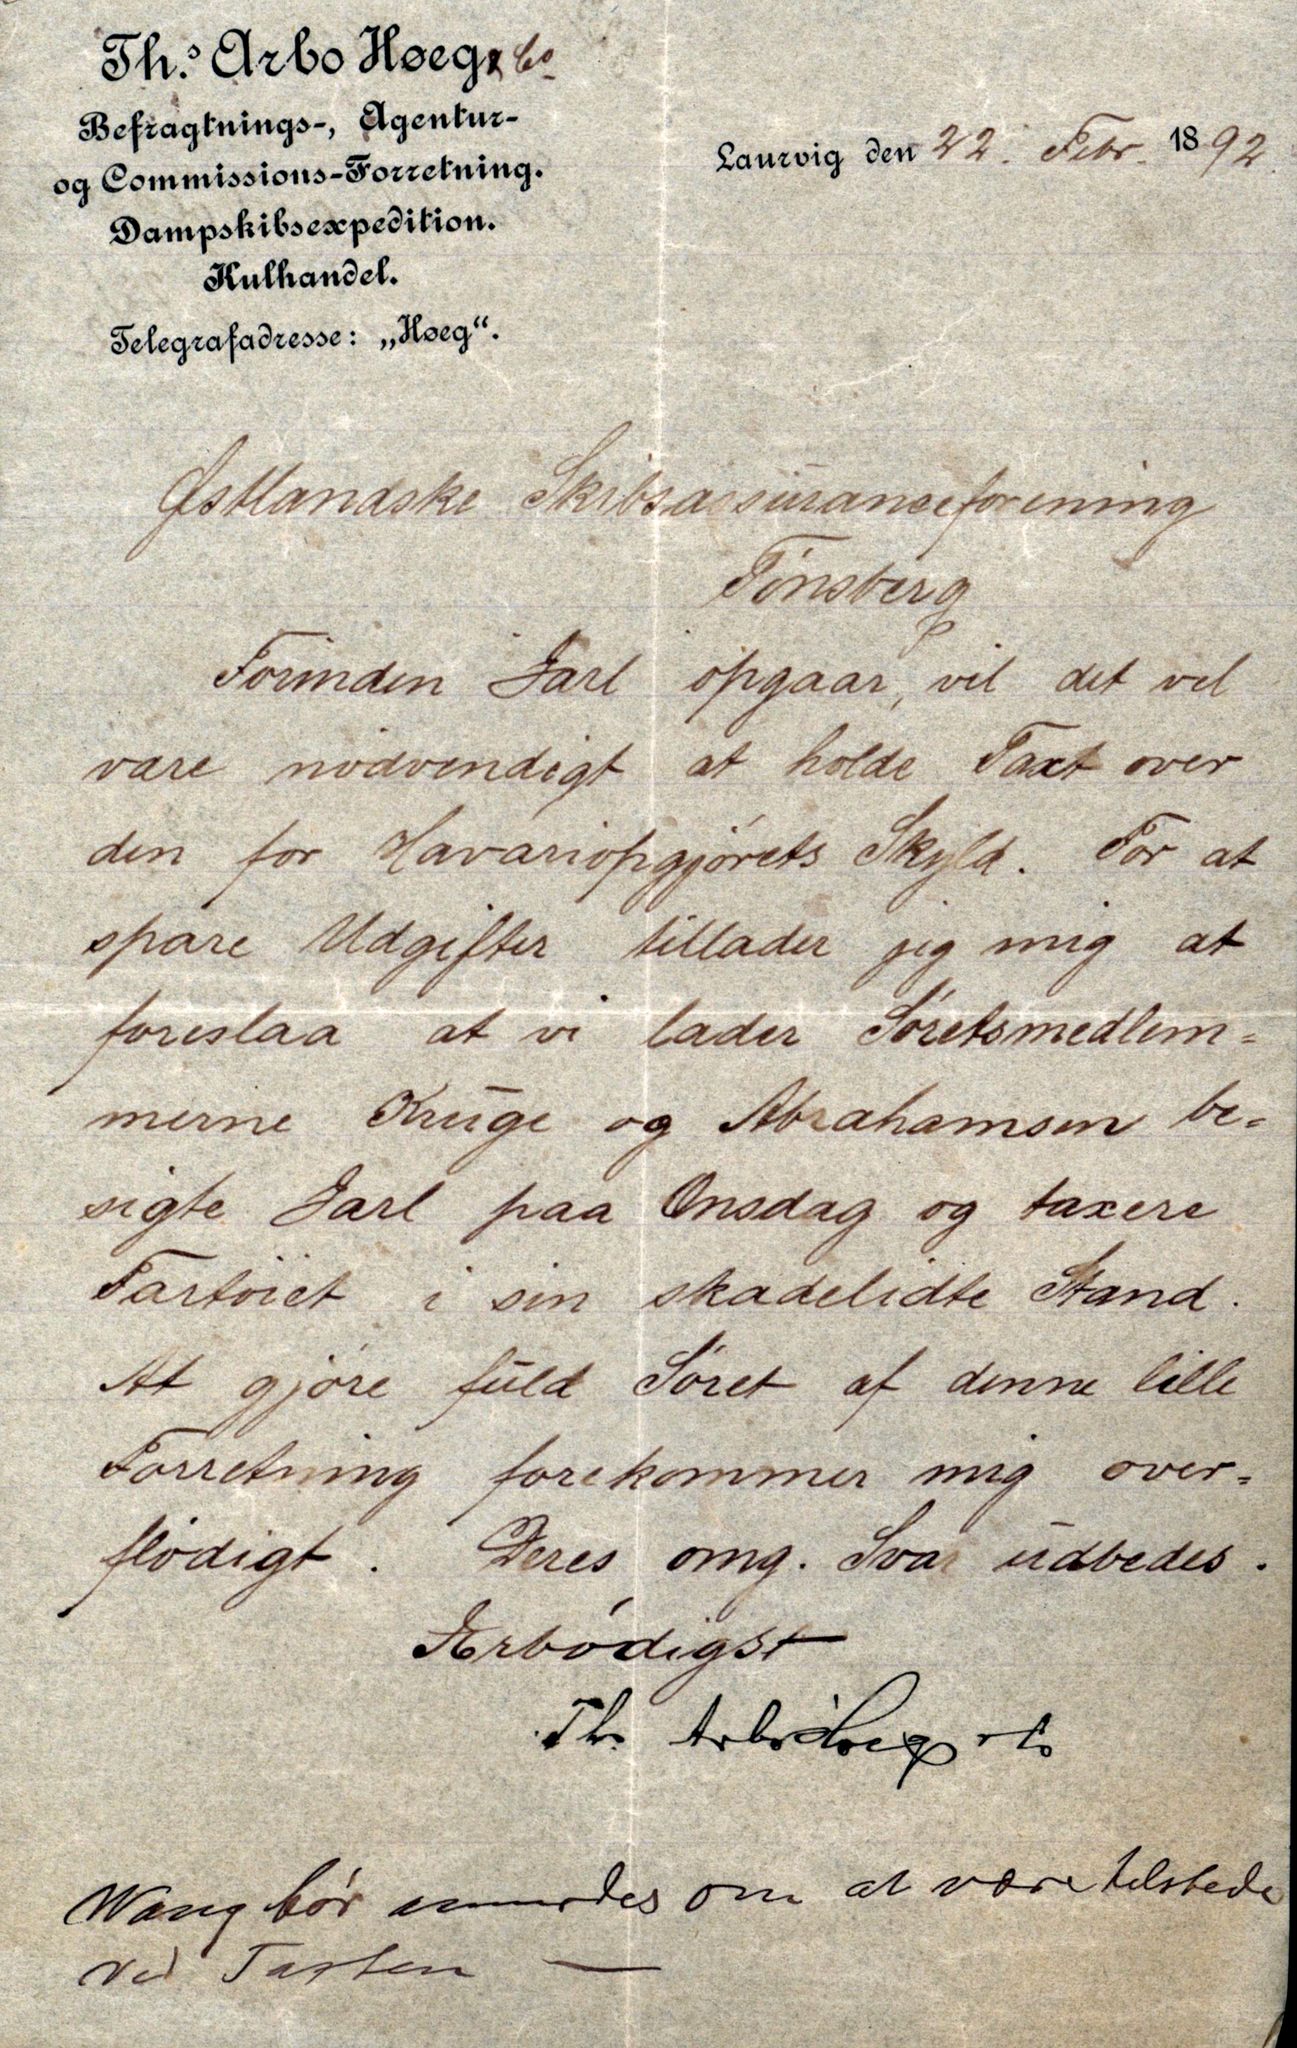 Th.s Arbo Høeg & Co
Befragtnings-, Agentur-
og Commissions-Forretning.
Dampskibsexpedition.
Kulhandel.
Telegrafadresse: „Høeg“.
Laurvig den 22. Febr. 1892.
Østlandske Skibsassuranceforening
Tönsberg
Forinden Jarl opgaar, vil det vel
være nödvendigt at holde Taxt over
den for Havariopgjörets Skyld. For at
spare Udgifter tillader jeg mig at
foreslaa at vi lader Söretsmedlem=
merne Kruge og Abrahamsen be=
sigte Jarl paa Onsdag og taxere
Fartöiet i sin skadelidte Stand.
At gjöre fuld Söret af denne lille
Forretning forekommer mig over=
flödigt. Deres omg. Svar udbedes.
Ærbödigst
Th. Arbo Höeg & Co
Wang bör om at være tilstede
ved Taxten —